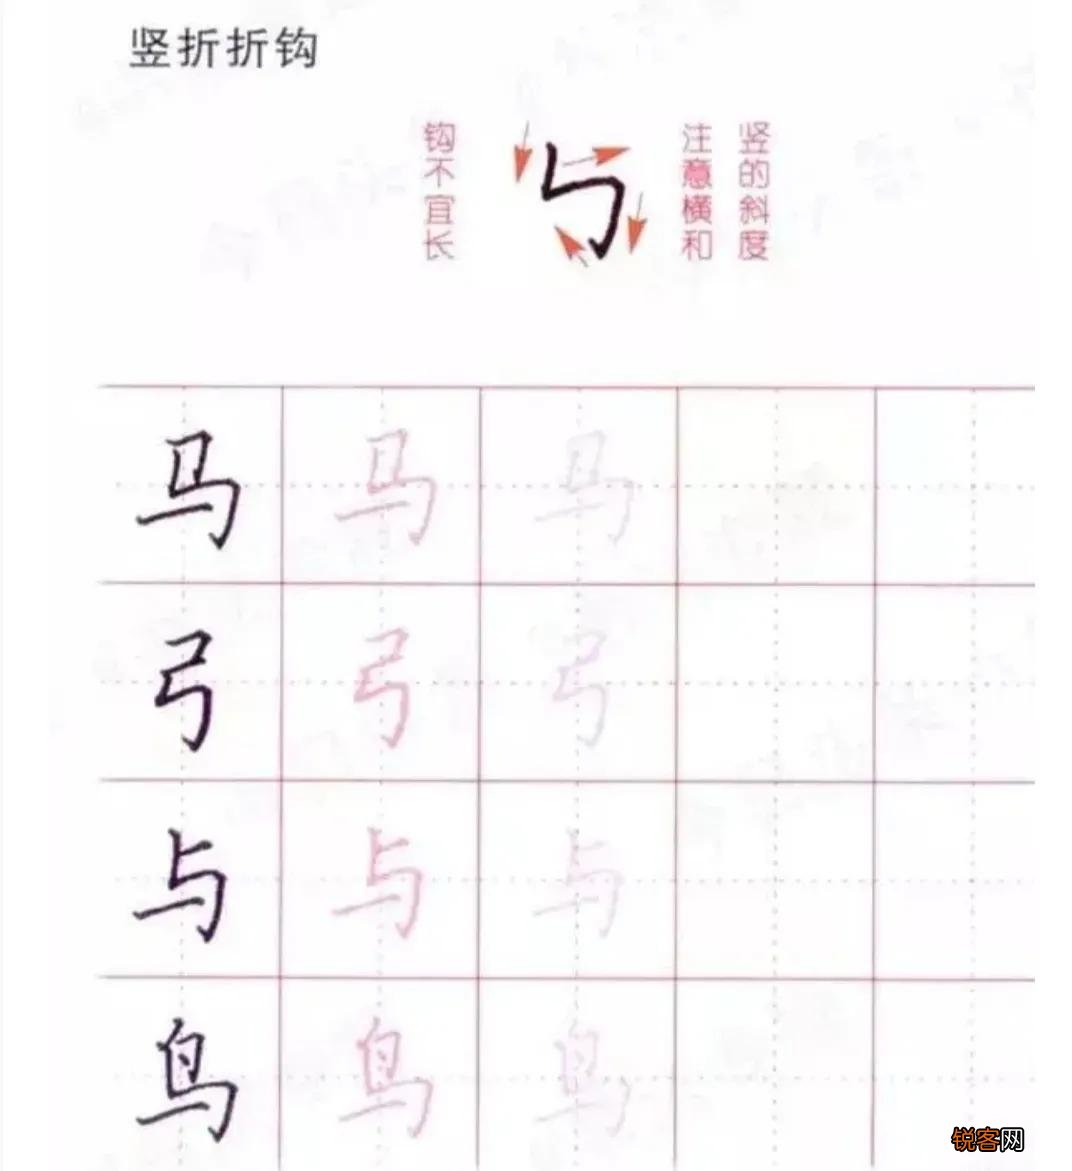 竖折折钩
钩不宜长
注意横和
竖的斜度
马 马 马
弓 弓 弓
与 与 与
鸟 鸟 鸟
锐客网